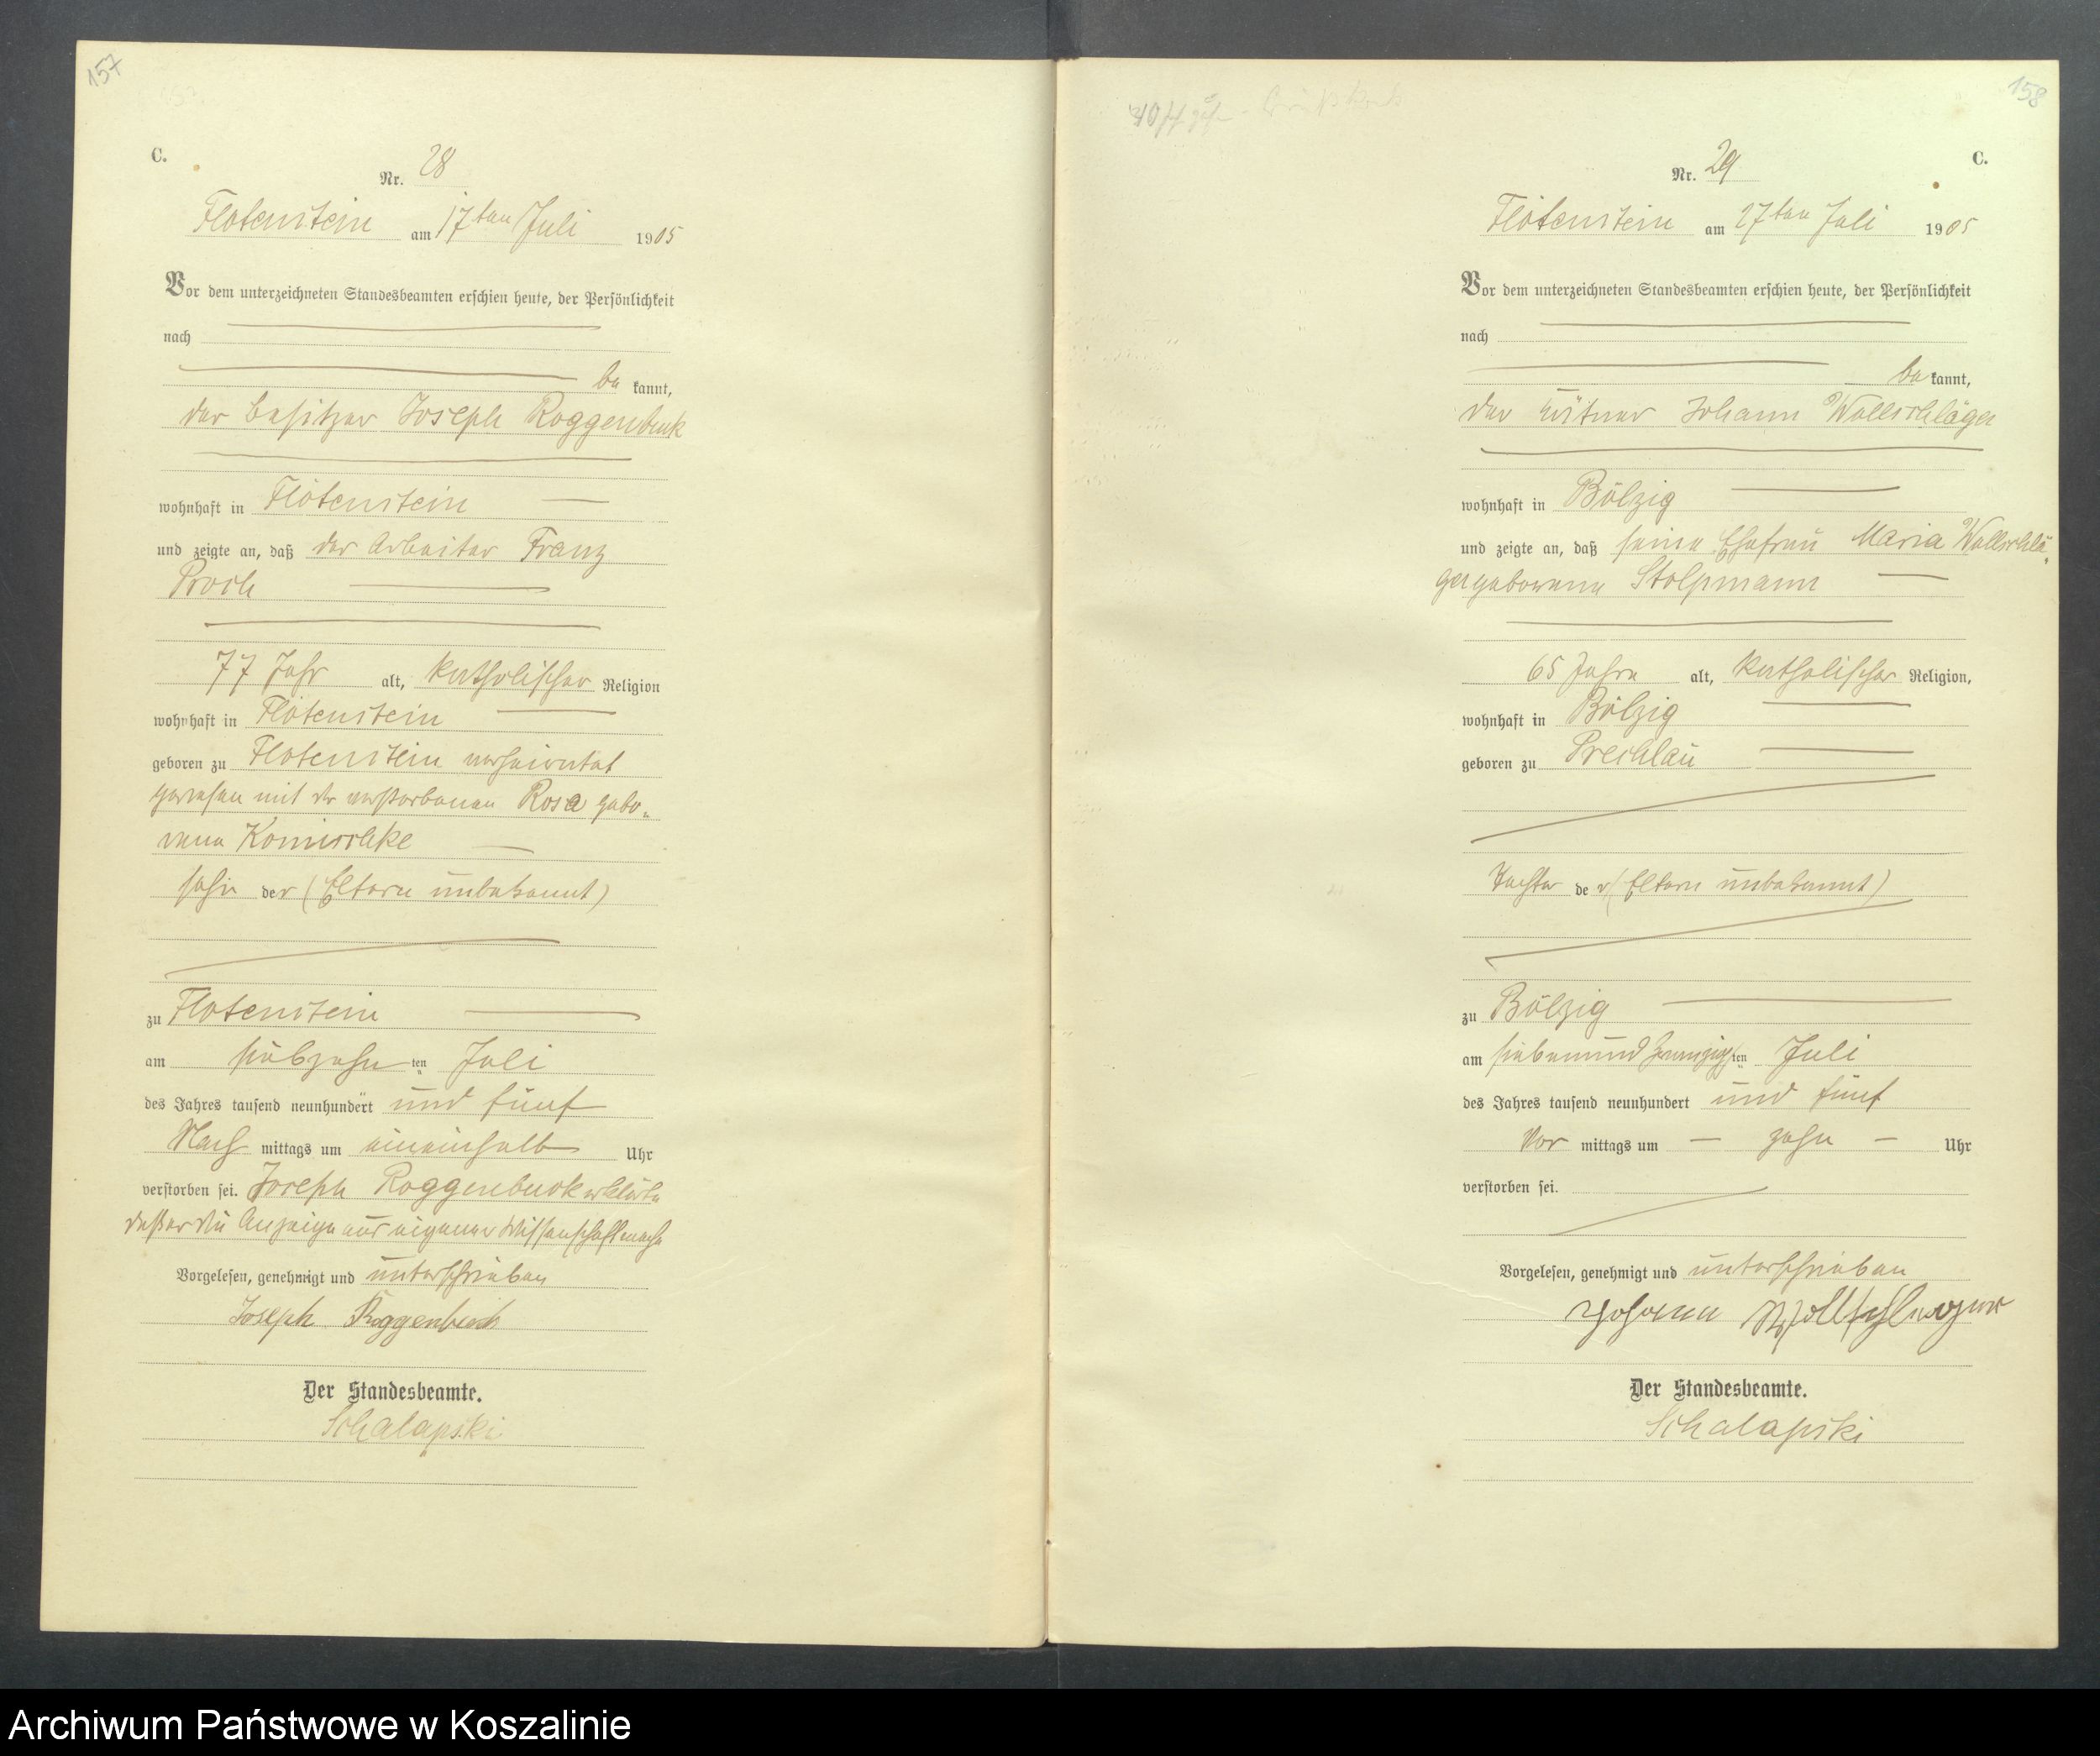 157
C.
Nr. 28
Flötenstein am 17ten Juli 1905
Vor dem unterzeichneten Standesbeamten erschien heute, der Persönlichkeit
nach
be kannt,
der Besitzer Joseph Roggenbuk
wohnhaft in Flötenstein
und zeigte an, daß der Arbeiter Franz
Proch
77 Jahr alt, katholischer Religion
wohnhaft in Flötenstein
geboren zu Flötenstein verheirathet
gewesen mit der verstorbenen Rosa gebo-
rene Komischke
Sohn der (Eltern unbekannt)
zu Flötenstein
am siebzehn ten Juli
des Jahres tausend neunhundert und fünf
Nach mittags um eineinhalb Uhr
verstorben sei. Joseph Roggenbuck erklärte
daß er die Anzeige aus eigener Wissenschaft mache
Vorgelesen, genehmigt und unterschrieben
Joseph Roggenbuck
Der Standesbeamte.
Schalapski
158
C.
Nr. 29
Flötenstein am 27ten Juli 1905
Vor dem unterzeichneten Standesbeamten erschien heute, der Persönlichkeit
nach
be kannt,
der Kätner Johann Wollschläger
wohnhaft in Bölzig
und zeigte an, daß seine Ehefrau Maria Wollschlä-
ger geborene Stolpmann
65 Jahre alt, katholischer Religion,
wohnhaft in Bölzig
geboren zu Prechlau
Tochter der (Eltern unbekannt)
zu Bölzig
am siebenundzwanzig ten Juli
des Jahres tausend neunhundert und fünf
Vor mittags um zehn Uhr
verstorben sei.
Vorgelesen, genehmigt und unterschrieben
Johann Wollschlaeger
Der Standesbeamte.
Schalapski
Archiwum Państwowe w Koszalinie